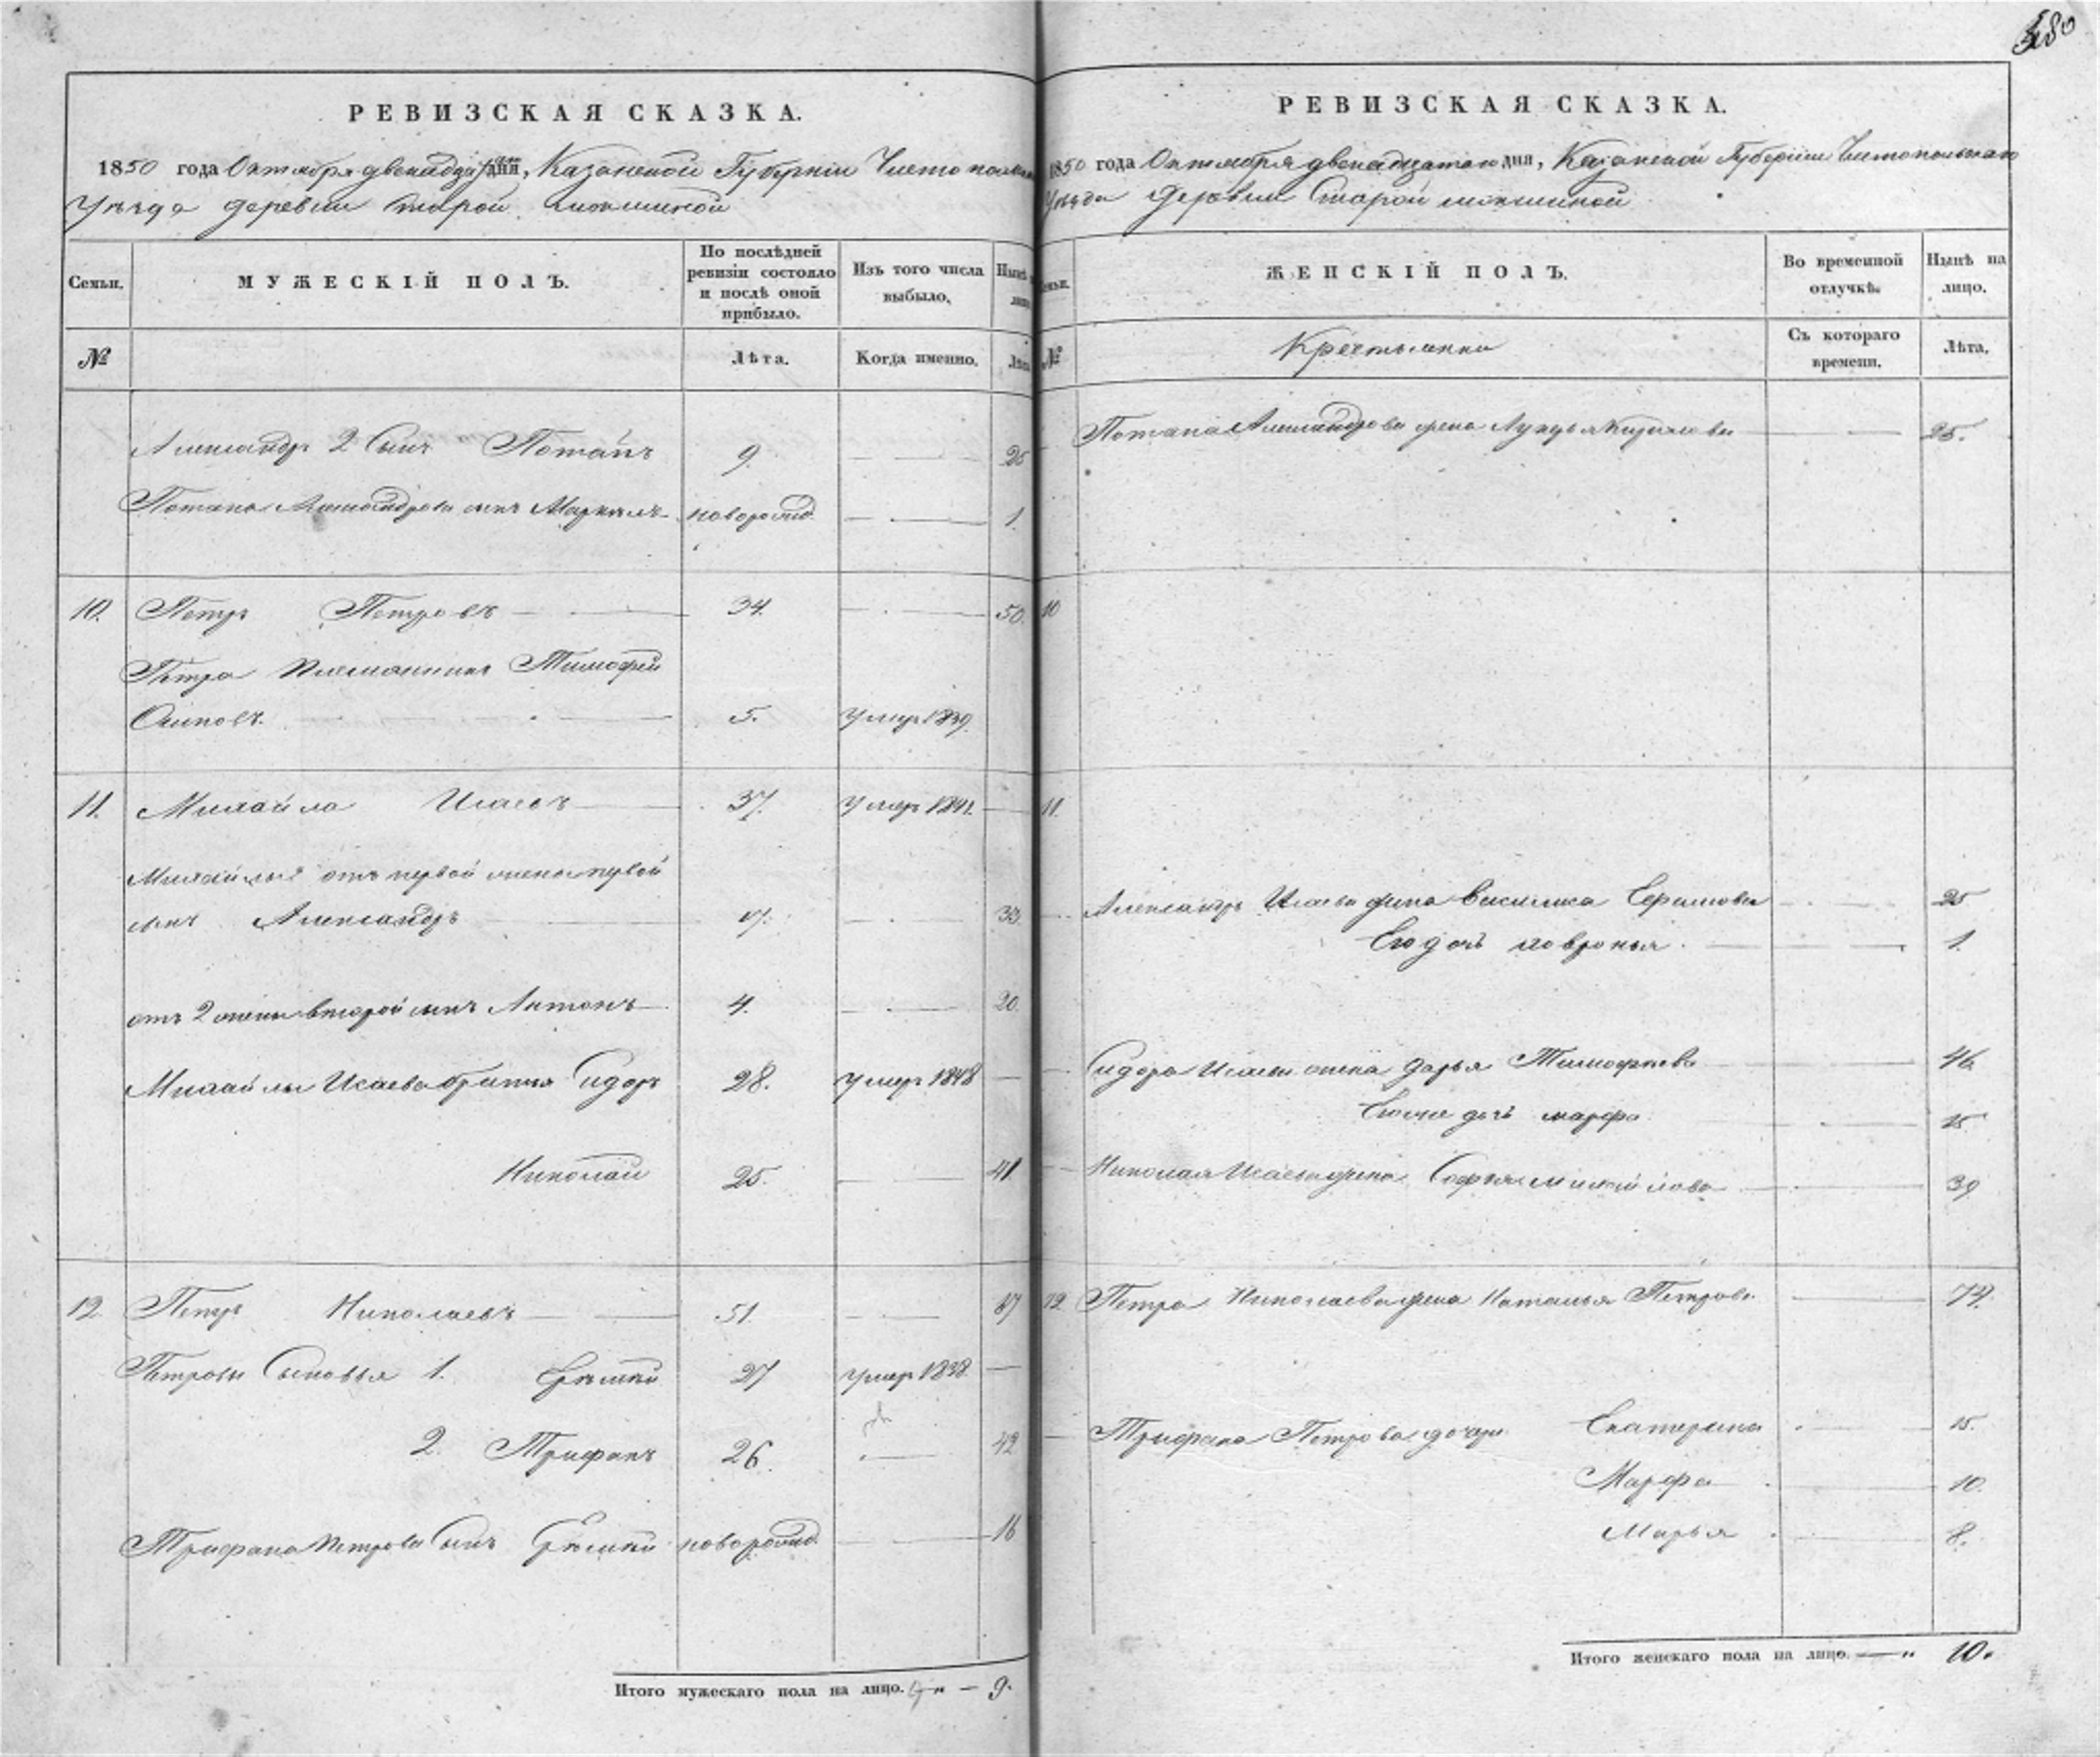 480
РЕВИЗСКАЯ СКАЗКА.
1850 года Октября двенадца дня, Казанской Губернiи Чистополь
Уѣзда деревни Старой
Семьи.
МУЖЕСКIЙ ПОЛЪ.
По послѣдней ревизiи состояло и послѣ оной прибыло.
Изъ того числа выбыло,
Нынѣ
№
Лѣта.
Когда именно.
Лѣта
Александр 2 Сынъ Потапъ 9. 25
Потапа Александрова сынъ Маркелъ новорожд. 1.
10. Петръ Петровъ 34. 50.
Петра племянникъ Тимофей
Осиповъ. 5. умер 1839.
11. Михайла Исаевъ 37. умер 1841.
Михайлы отъ первой жены первой
сынъ Александръ 17. 33
отъ 2 жены второй сынъ Антонъ 4. 20.
Михайлы Исаева братья Сидоръ 28. умер 1848
Николай 25. 41
12. Петръ Николаевъ 51. 67
Петровы Сыновья 1. 27 умер 1838
2. Трифанъ 26. 42
Трифана Петрова Сынъ новорожд. 16
Итого мужескаго пола на лицо. „ — 9.
РЕВИЗСКАЯ СКАЗКА.
1850 года Октября двенадцатаго дня, Казанской Губернiи Чистопольскаго
Уѣзда Деревни Старой
ЖЕНСКIЙ ПОЛЪ.
Во временной отлучкѣ.
Нынѣ на лицо.
№
Крестьянки
Съ котораго времени.
Лѣта.
Потапа Александрова жена Лукерья 25.
10
11.
Александр Исаева жена Василиса Ефимова 25
Его дочь 1.
Сидора Исаева жена Дарья Тимофеева 46
дочь марфа 15
Николая Исаева жена Софья Михайлова 39
12 Петра Николаева жена Наталья Петрова 74.
Трифана Петрова дочери Екатерина 15.
Марфа 10.
Марья 8.
Итого женскаго пола на лицо. — „ 10.